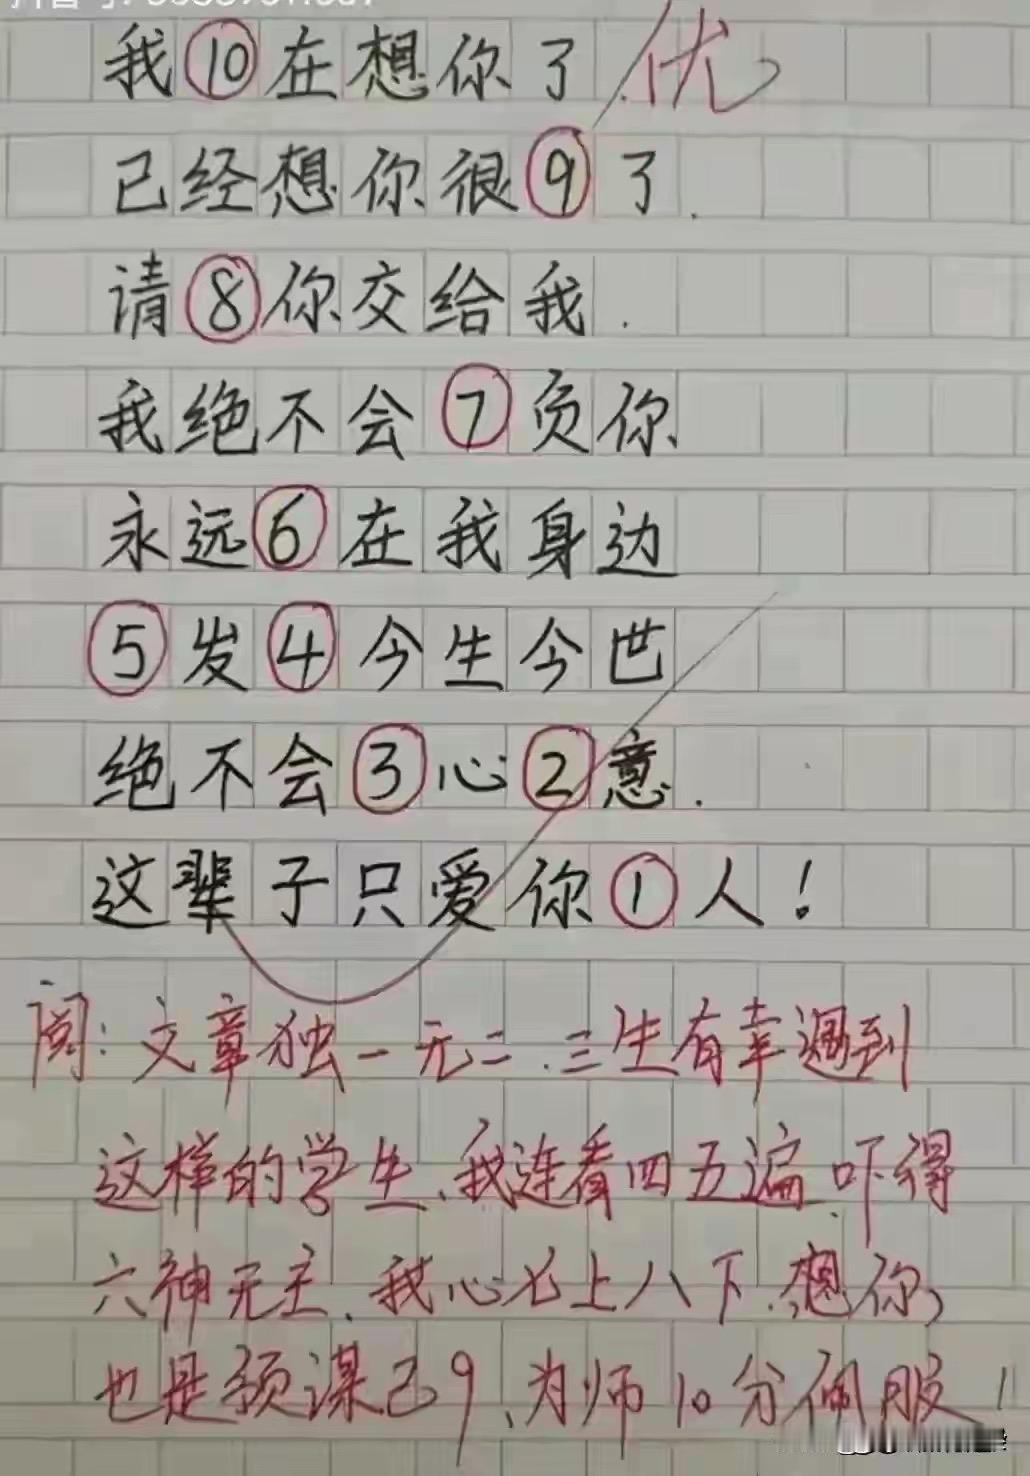 我⑩在想你了 优
已经想你很⑨了.
请⑧你交给我.
我绝不会⑦负你
永远⑥在我身边
⑤发④今生今世
绝不会③心②意.
这辈子只爱你①人！
阅：文章独一无二.三生有幸遇到
这样的学生、我连看四五遍.吓得
六神无主、我心七上八下.想你
也是预谋已9、为师10分佩服！